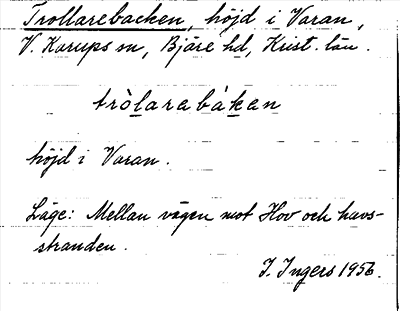 Trollarebacken, höjd i Varan,
V. Karups sn, Bjäre hd, Krist. län.
tròlarebáken
höjd i Varan.
Läge: Mellan vägen mot Hov och havs-
stranden.
I. Ingers 1956.